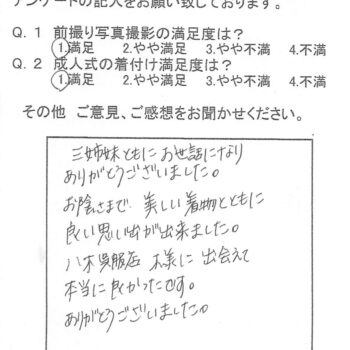 アンケートの記入をお願い致しております。
Q.1 前撮り写真撮影の満足度は?
1.満足 2.やや満足 3.やや不満 4.不満
Q.2 成人式の着付け満足度は?
1.満足 2.やや満足 3.やや不満 4.不満
その他 ご意見、ご感想をお聞かせください。
三姉妹ともに お世話になり
ありがとうございました。
お陰さまで 美しい着物とともに
良い思い出が出来ました。
八木呉服店 様に 出会えて
本当に良かったです。
ありがとうございました。